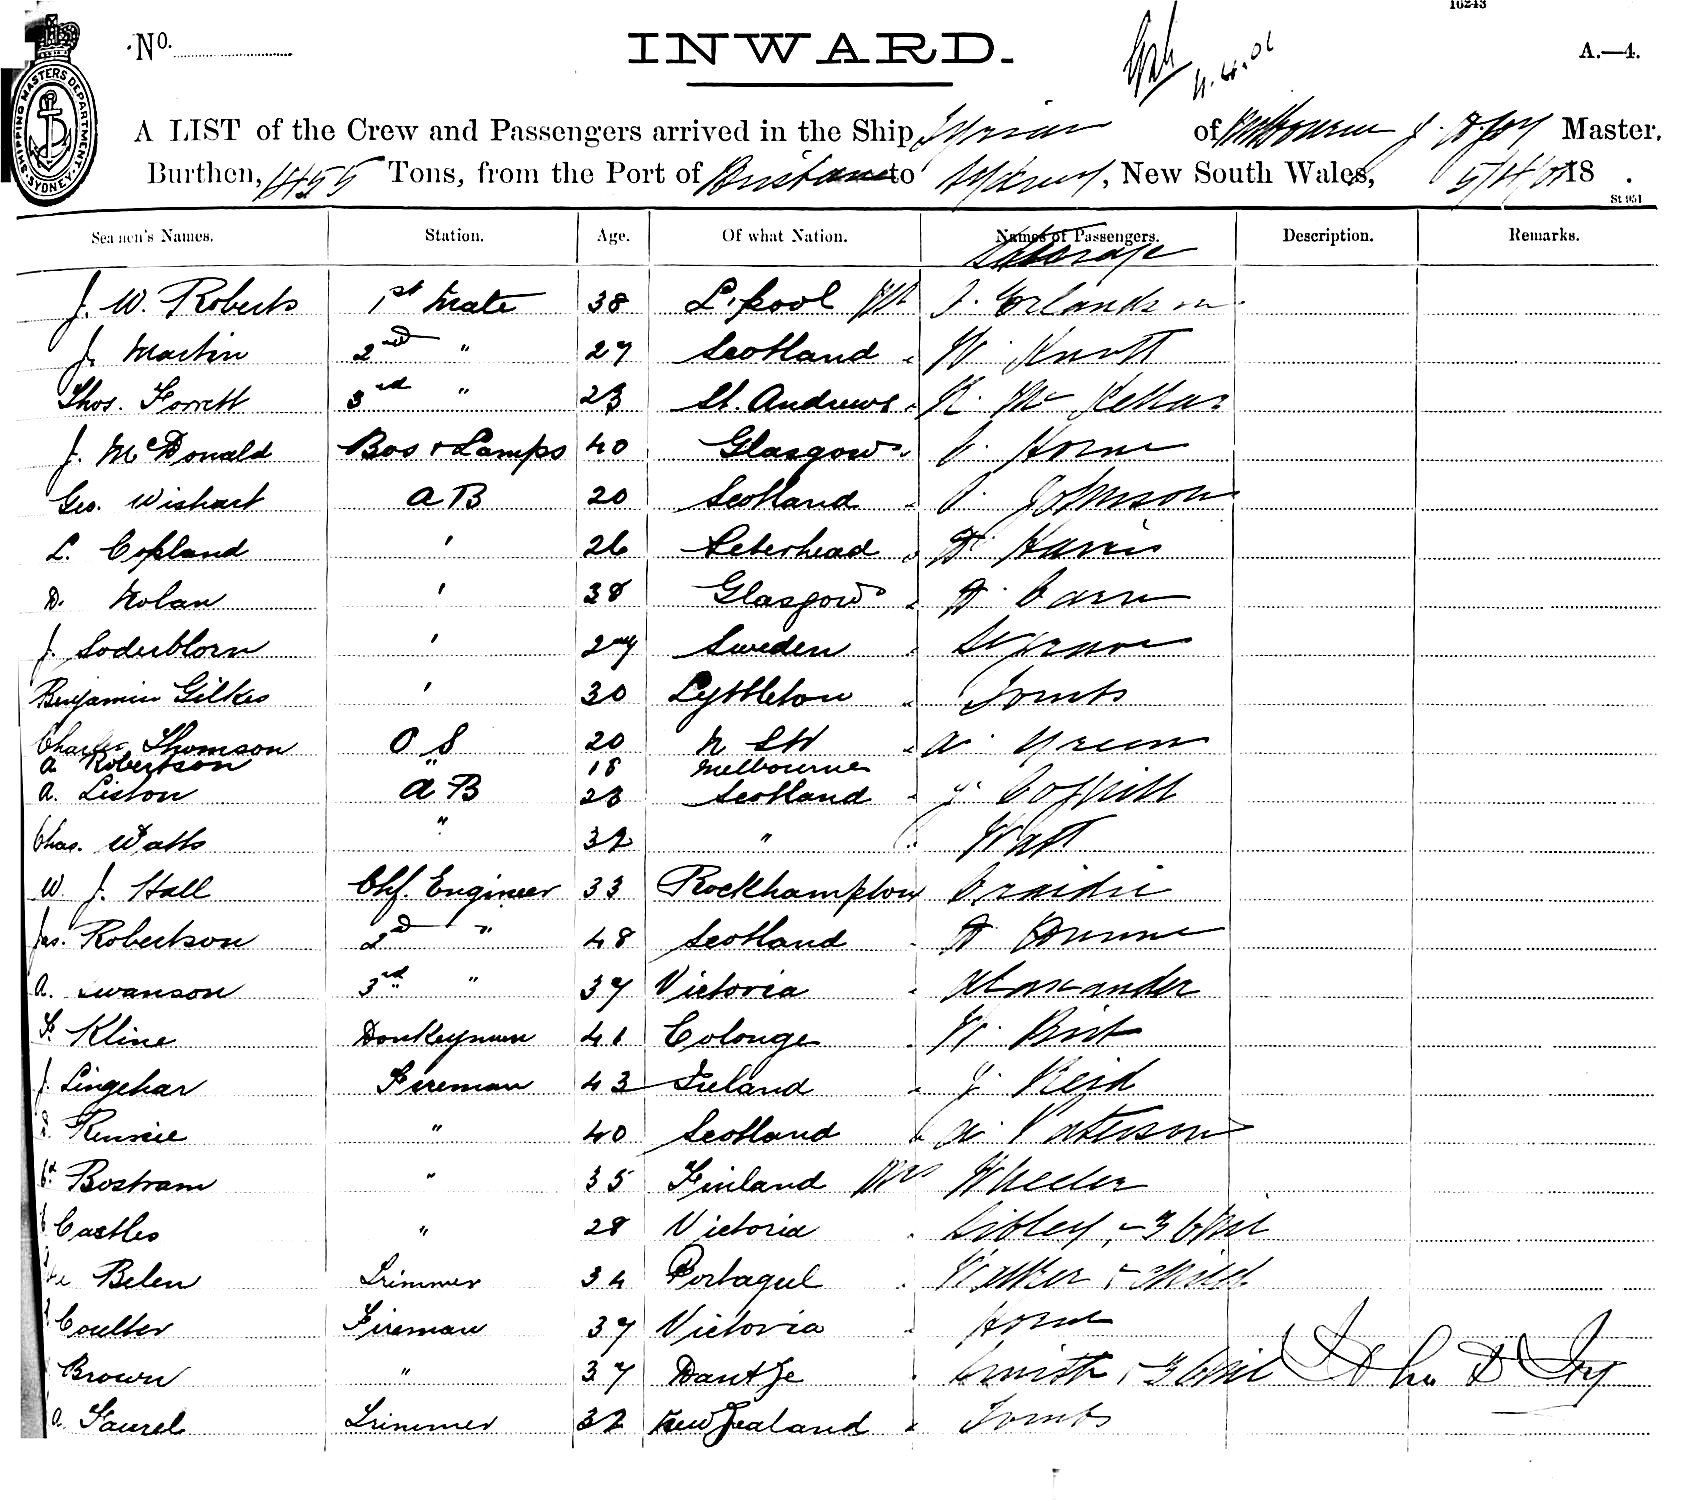 16243
No. INWARD. 4.4.01 A.—4.
A LIST of the Crew and Passengers arrived in the Ship Tyrian of Melbourne J. D. Joy Master.
Burthen, 1455 Tons, from the Port of Brisbane to Sydney, New South Wales, 5/4/01 18 .
St 951
SHIPPING MASTERS DEPARTMENT SYDNEY
Seamen's Names. Station. Age. Of what Nation. Names of Passengers. Description. Remarks.
Steerage
J. W. Roberts 1st Mate 38 L'pool Mr
J. Martin 2nd " 27 Scotland W. Knott
Thos. Forrett 3rd " 23 St. Andrews McKellar
J. McDonald Bos & Lamps 40 Glasgow Horne
Geo. Wishart A B 20 Scotland Johnson
L. Copland ' 26 Peterhead Harris
D. Nolan ' 38 Glasgow
J. Soderblorn ' 27 Sweden
Benjamin Gilkes ' 30 Lyttleton Tombs
Charles Thomson O S 20 N SW
A Robertson " 18 Melbourne
A. Liston A B 23 Scotland
Chas. Watts " 32 " Watt
W J. Hall Chf. Engineer 33 Rockhampton
Jas. Robertson 2nd " 48 Scotland
A. Swanson 3rd " 37 Victoria Alexander
F. Kline Donkeyman 41 Colonge W. Birt
J. Lingehar Fireman 43 Ireland J. Reid
Rennie " 40 Scotland A. Paterson
Bostram " 35 Finland Mrs Wheeler
Castles " 28 Victoria Sibley & 3 Chil
Belen Trimmer 34 Portagul Walker & child
Coulter Fireman 37 Victoria Horne
Brown " 37 Dantje Smith & 3 Chil John D Joy
A Faurel Trimmer 32 New Zealand Tombs